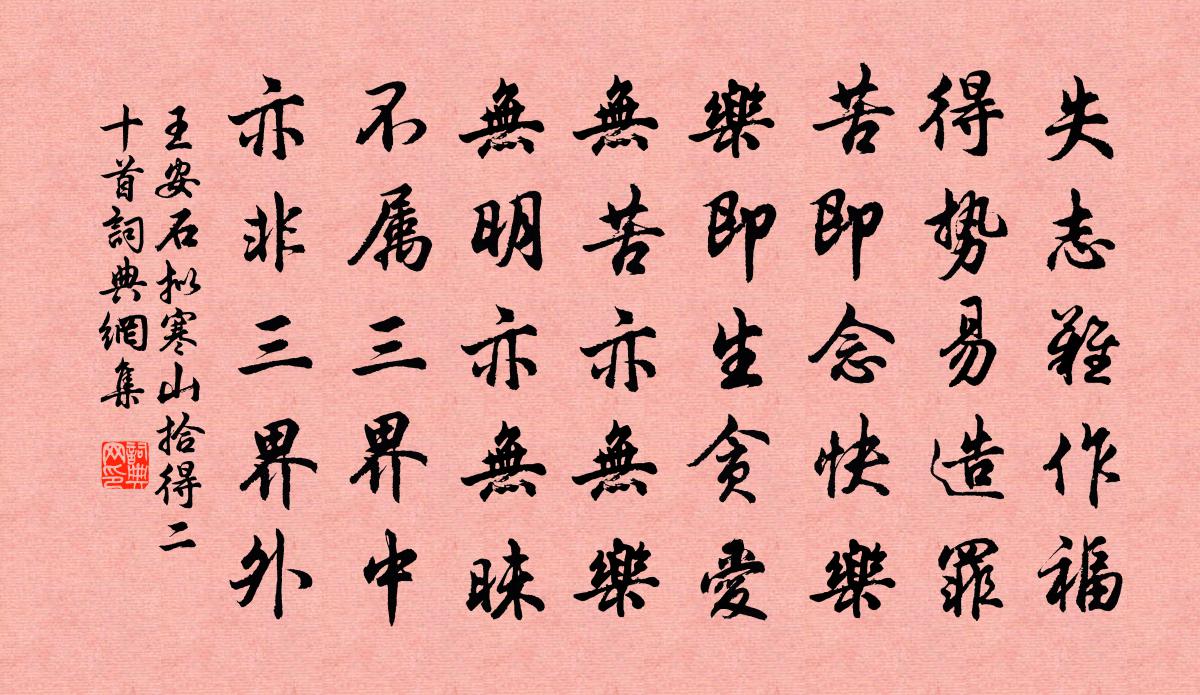 失志難作福
得势易造罪
苦即念快樂
樂即生貪愛
無苦亦無樂
無明亦無昧
不属三界中
亦非三界外
王安石拟寒山拾得二
十首詞典網集
詞典
网印